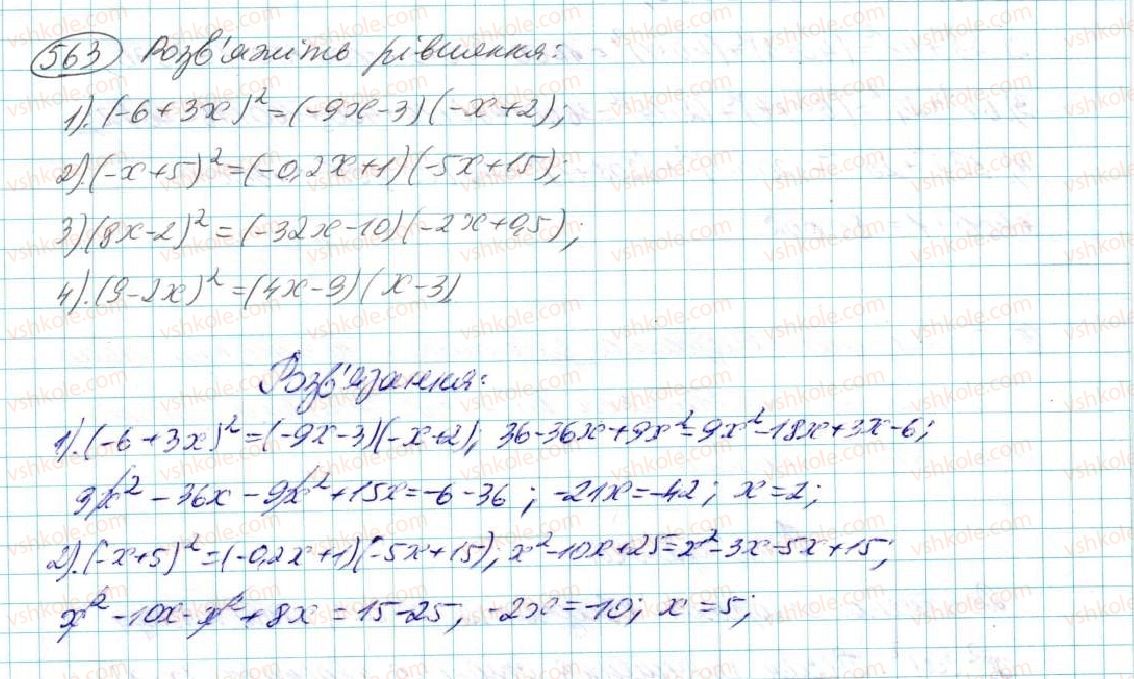 563 Розв'яжіть рівняння:
1). (-6+3x)²=(-9x-3)(-x+2);
2) (-x+5)²=(-0,2x+1)(-5x+15);
3) (8x-2)²=(-32x-10)(-2x+0,5);
4). (9-2x)²=(4x-9)(x-3)
Розв'язання:
1). (-6+3x)²=(-9x-3)(-x+2); 36-36x+9x²=9x²-18x+3x-6;
9x²-36x-9x²+15x=-6-36; -21x=-42; x=2;
2). (-x+5)²=(-0,2x+1)(-5x+15); x²-10x+25=x²-3x-5x+15;
x²-10x-x²+8x=15-25; -2x=-10; x=5;